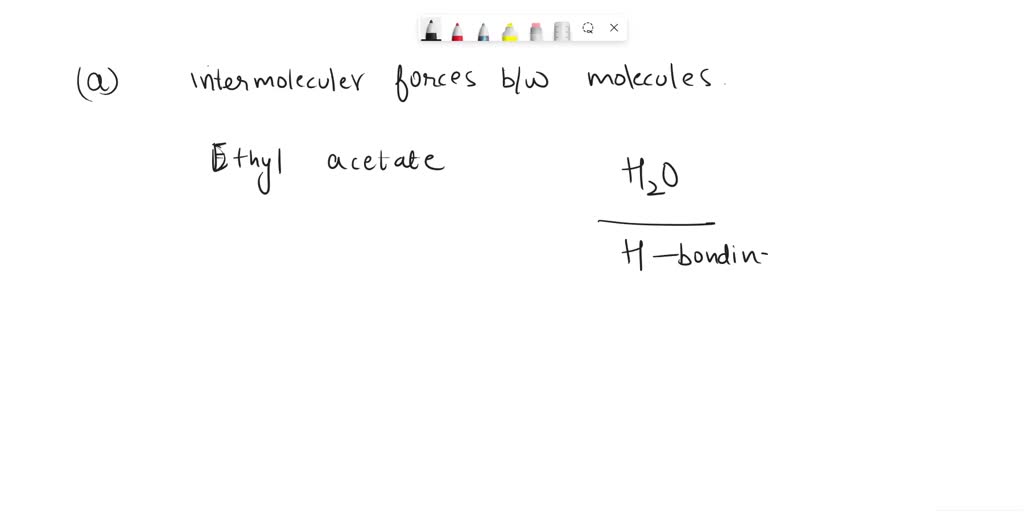 (a) intermoleculer forces b/w molecules.
Ethyl acetate
H2O
H-bondin-